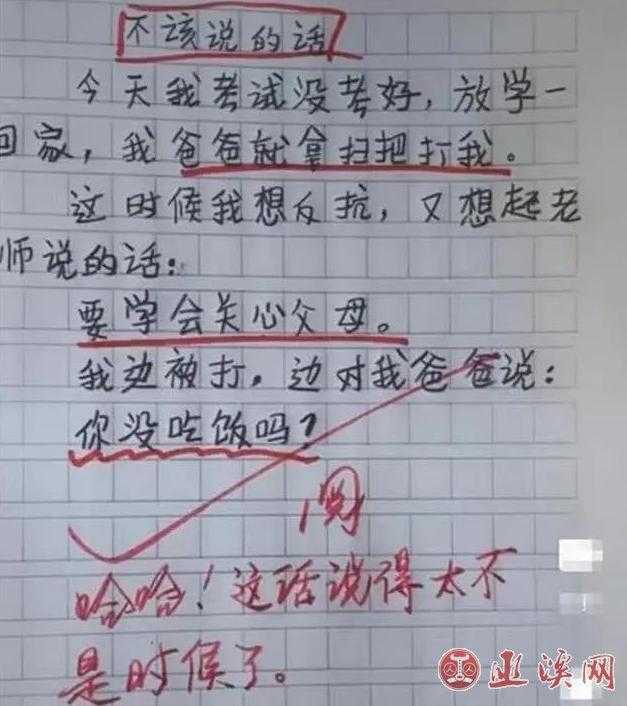 不该说的话
今天我考试没考好，放学一
回家，我爸爸就拿扫把打我。
这时候我想反抗，又想起老
师说的话：
要学会关心父母。
我边被打，边对我爸爸说：
你没吃饭吗？
阅
哈哈！这话说得太不
是时候了。
巫溪网